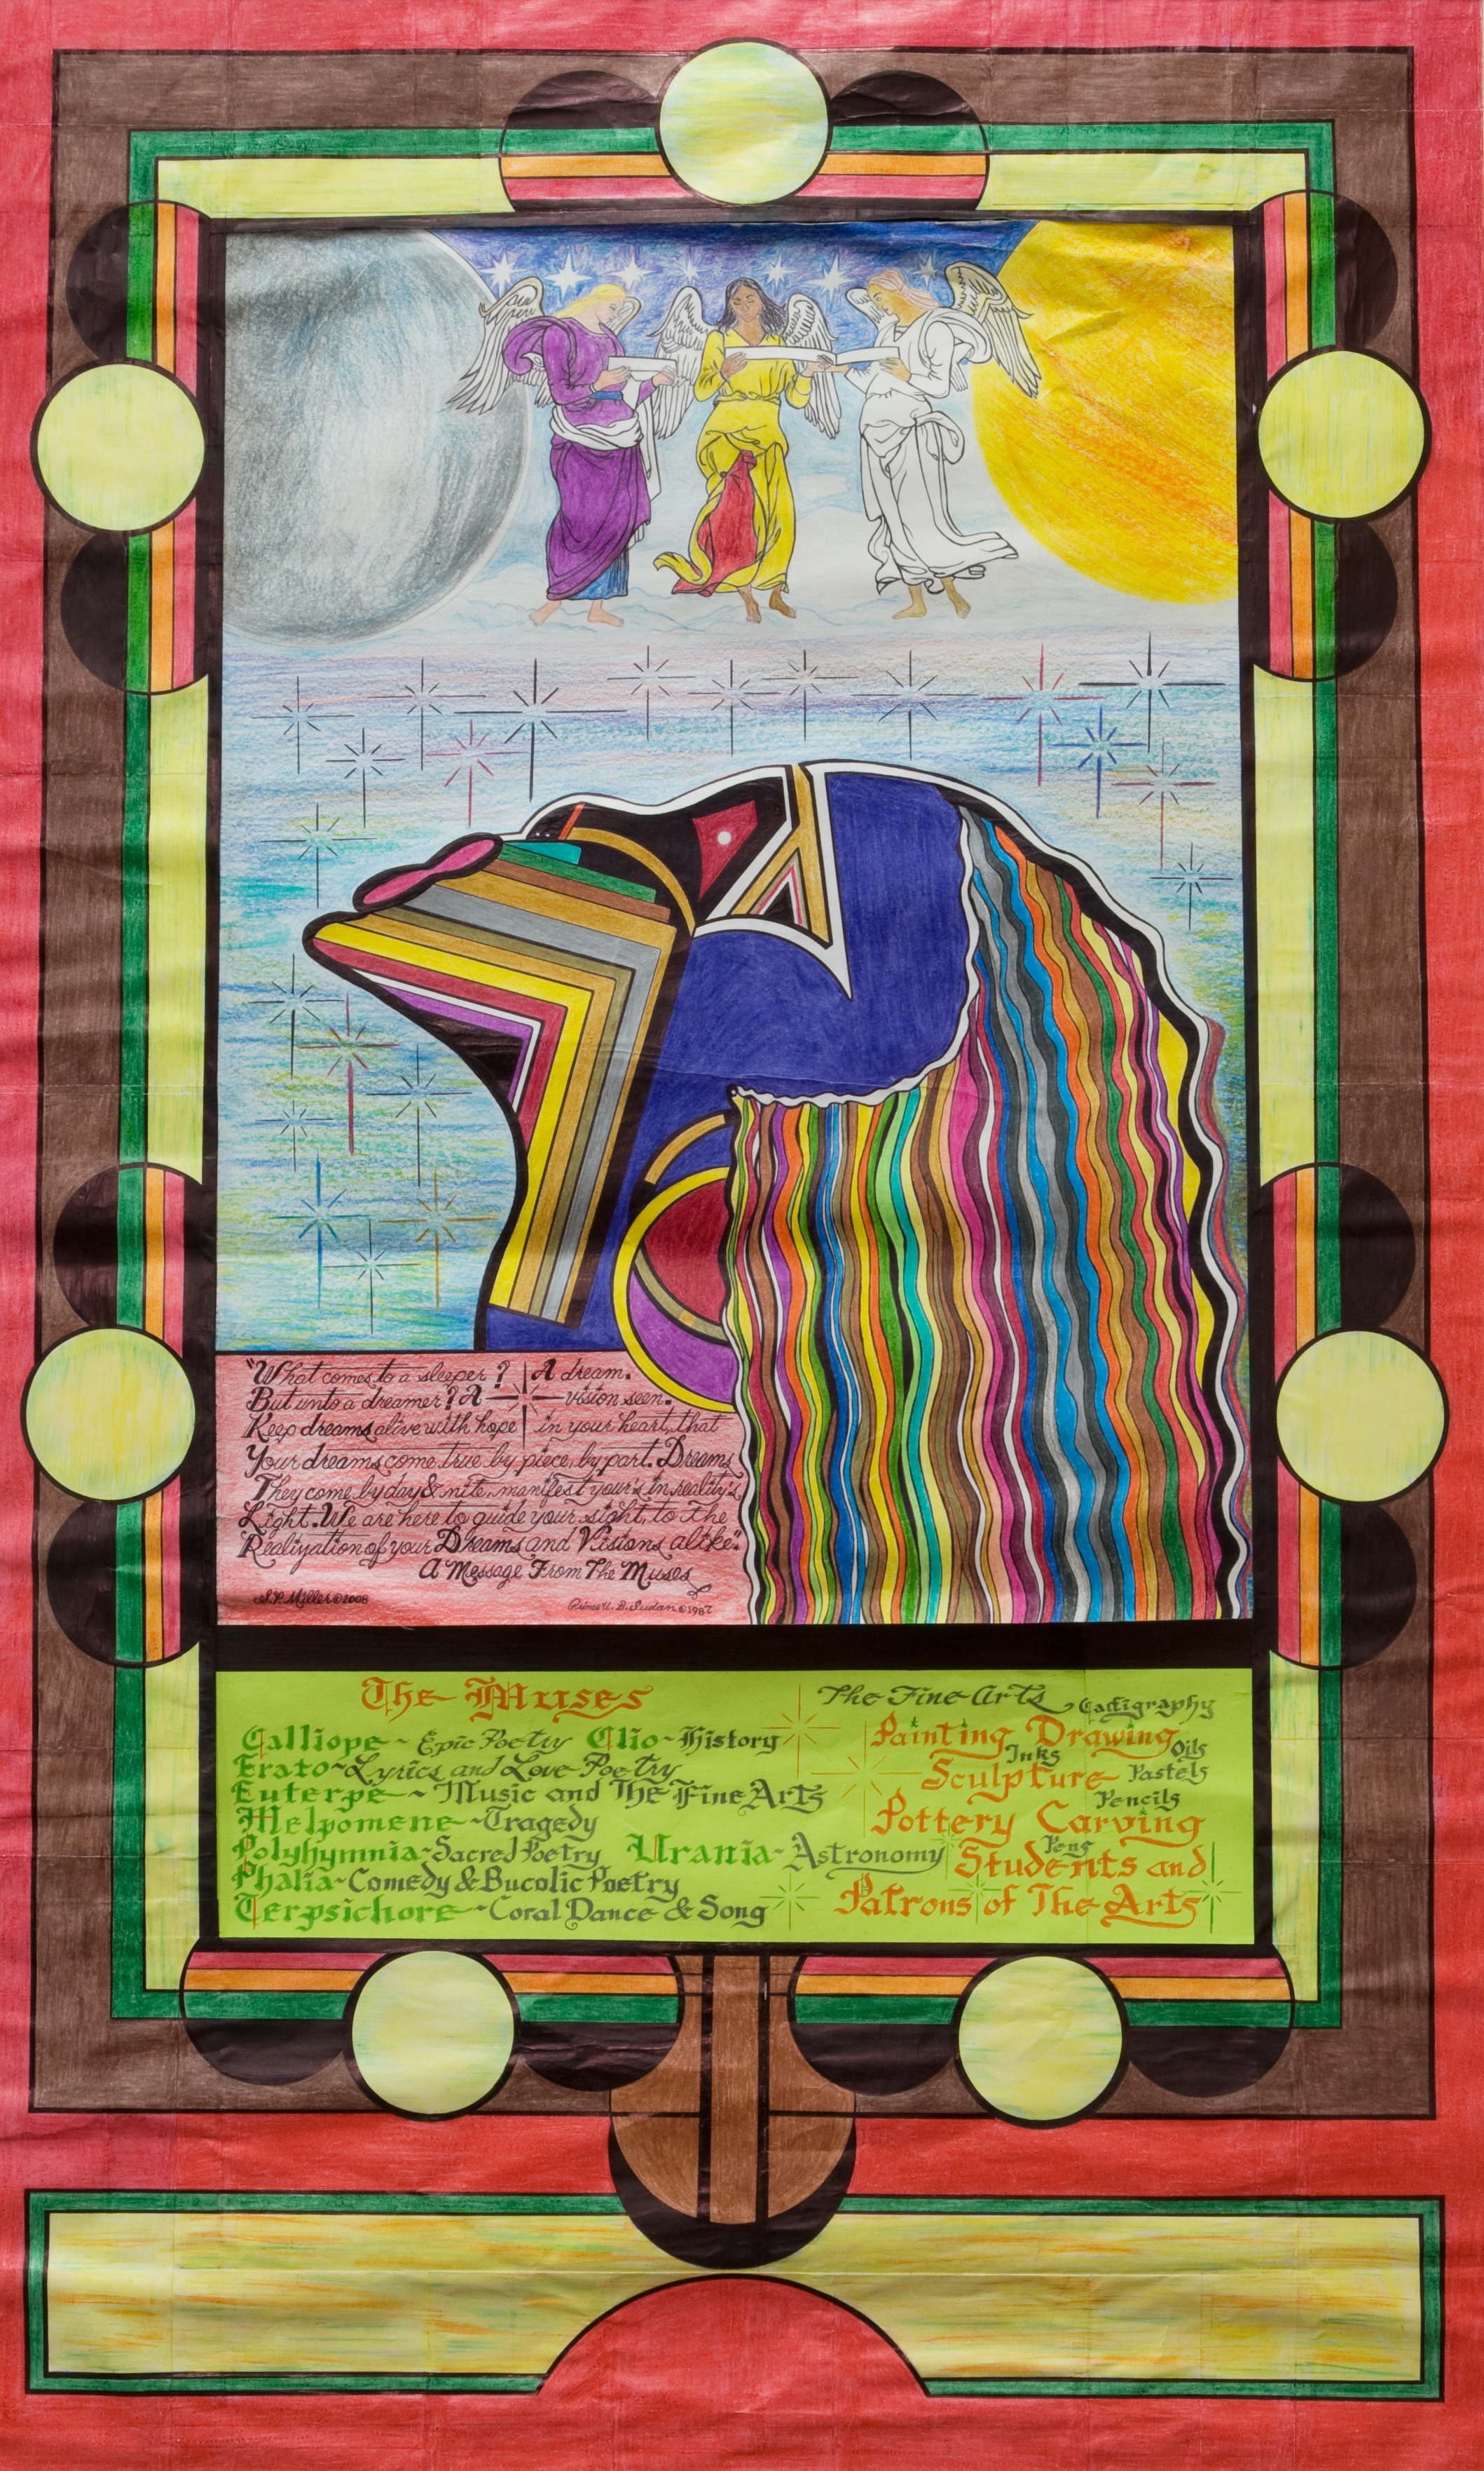 "What comes to a sleeper? A dream.
But unto a dreamer? A vision seen.
Keep dreams alive with hope in your heart, that
Your dreams come true by piece, by part. Dreams
They come by day & nite, manifest your's in reality's
Light. We are here to guide your sight, to The
Realization of your Dreams and Visions alike"
A Message From The Muses
S.P. Miller © 2008
Prince U. B. Sudan © 1987
The Muses
Calliope ~ Epic Poetry Clio ~ History
Erato ~ Lyrics and Love Poetry
Euterpe ~ Music and The Fine Arts
Melpomene ~ Tragedy
Polyhymnia ~ Sacred Poetry Urania ~ Astronomy
Phalia ~ Comedy & Bucolic Poetry
Terpsichore ~ Coral Dance & Song
The Fine Arts Calligraphy
Painting Drawing
Inks Oils
Sculpture Pastels
Pencils
Pottery Carving
Pens
Students and
Patrons of The Arts